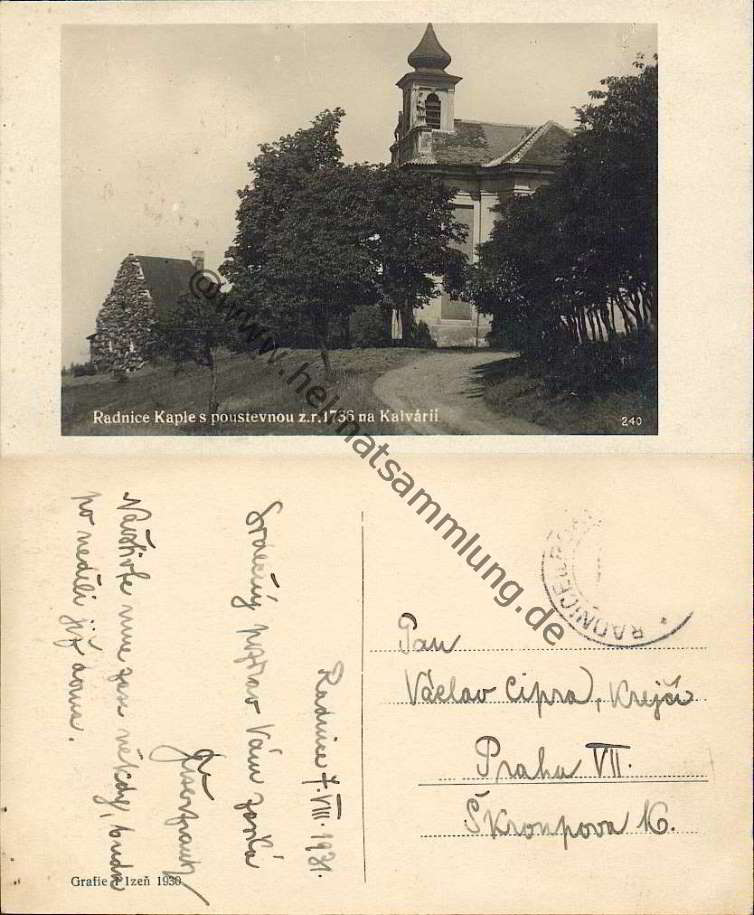 Radnice Kaple s poustevnou z.r.1736 na Kalvárii
240
© www.heimatsammlung.de
RADNICE
Radnice 7.VIII.1931.
Srdečný pozdrav Vám zasílá
Navštivte mne zase někdy, budu
po neděli již doma.
Pan
Václav Cipra, Krejčí
Praha VII.
Škroupova 16.
Grafie Plzeň 1930